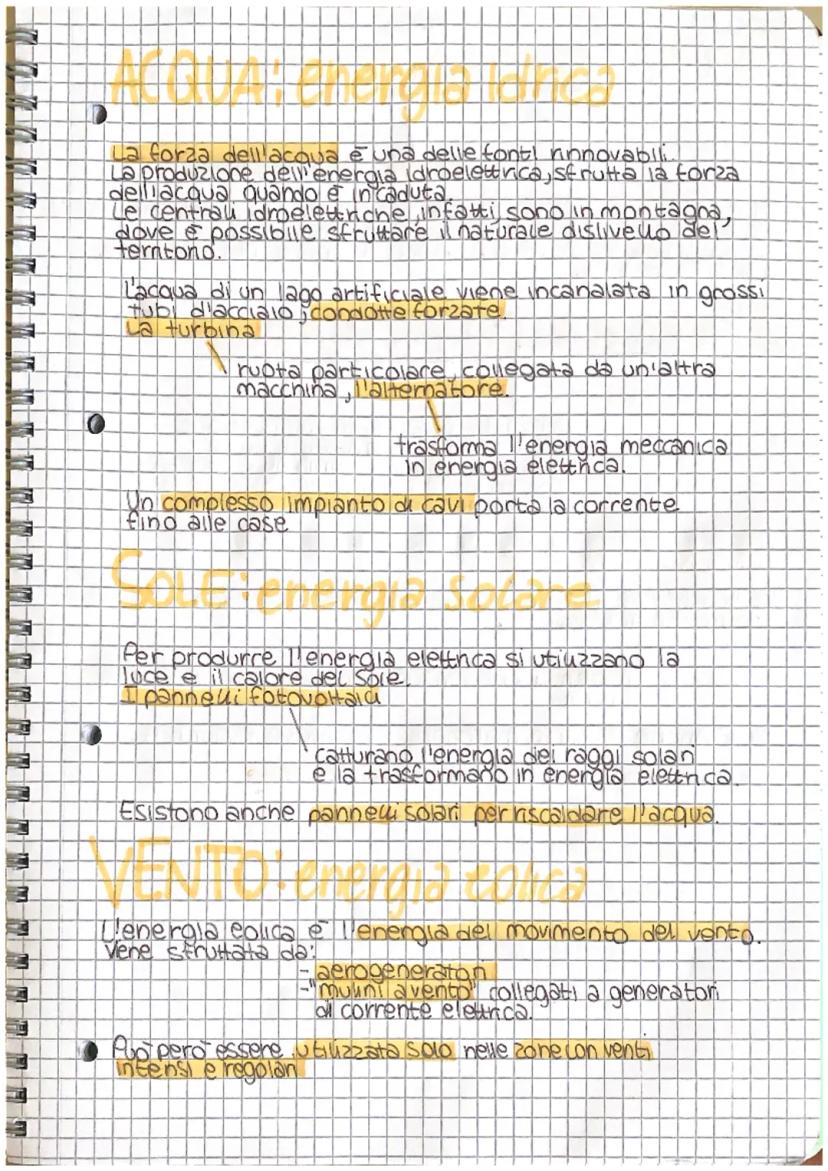 ACQUA: energia idrica
La forza dell'acqua è una delle fonti rinnovabili.
La produzione dell'energia idroelettrica, sfrutta la forza
dell'acqua quando è in caduta.
Le centrali idroelettriche, infatti, sono in montagna,
dove è possibile sfruttare il naturale dislivello del
territorio.
L'acqua di un lago artificiale viene incanalata in grossi
tubi d'acciaio, condotte forzate.
La turbina
ruota particolare, collegata da un'altra
macchina, l'alternatore.
trasforma l'energia meccanica
in energia elettrica.
Un complesso impianto di cavi porta la corrente
fino alle case
SOLE: energia solare
Per produrre l'energia elettrica si utilizzano la
luce e il calore del Sole.
I pannelli fotovoltaici
catturano l'energia dei raggi solari
e la trasformano in energia elettrica.
Esistono anche pannelli solari per riscaldare l'acqua.
VENTO: energia eolica
L'energia eolica è l'energia del movimento del vento.
Vene sfruttata da:
- aerogeneratori
- "mulini a vento" collegati a generatori
di corrente elettrica.
Può però essere utilizzata solo nelle zone con venti
intensi e regolari